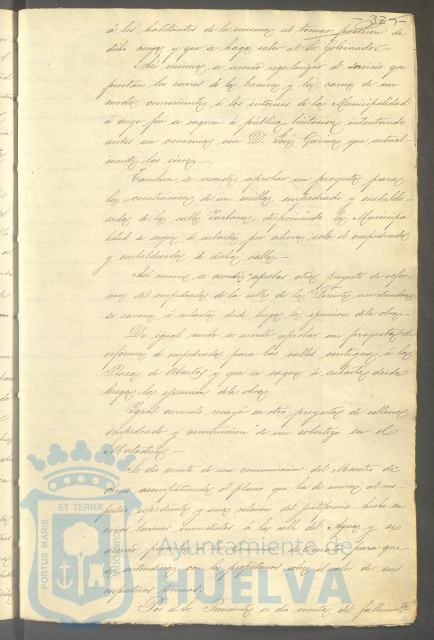 - 33 -
á los habitantes de la misma al tomar posesion de
dicho cargo y que se haga saber al Sr. Gobernador.
Asi mismo se acordó regularizar el servicio que
prestan los carros de la basura y las carnes de un
modo conveniente á los intereses de la Municipalidad
á cuyo fin se saquen á pública licitacion intentando
antes un convenio con D. José Garcia que actual-
mente los sirve.-
Tambien se acordó aprobar un proyecto para
la construccion de un nuevo empedrado y embaldo-
sado de la calle disponiendo la Municipa
lidad se saque á subasta por ahora solo el empedrado
y embaldosado de dicha calle.-
Asi mismo se acordó aprobar otro proyecto de refor-
ma del empedrado de la calle de la Fuente acordandose
se sacara á subasta desde luego la ejecucion de la obra.-
De igual modo se acordó aprobar un proyecto de
reforma de empedrado para las calles contiguas á la
Plaza de Abastos y que se saque á subasta desde
luego la ejecucion de la obra
Igual acuerdo recayó en otro proyecto de
empedrado y construccion de un cobertizo en el
Matadero.-
Se dió cuenta de una comunicacion del Maestro de
obras acompañando el plano que ha de unirse al res-
pectivo expediente y una relacion del justiprecio hecho en
varios terrenos inmediatos á la calle del Agua y se
acordó para que
se entendiera con los propietarios sobre el valor de sus
respectivos terrenos.-
Por el Sr. Presidente se dió cuenta del fallecimto
PORTUS MARIS
ET TERRÆ
CUSTODIA
Ayuntamiento de
HUELVA